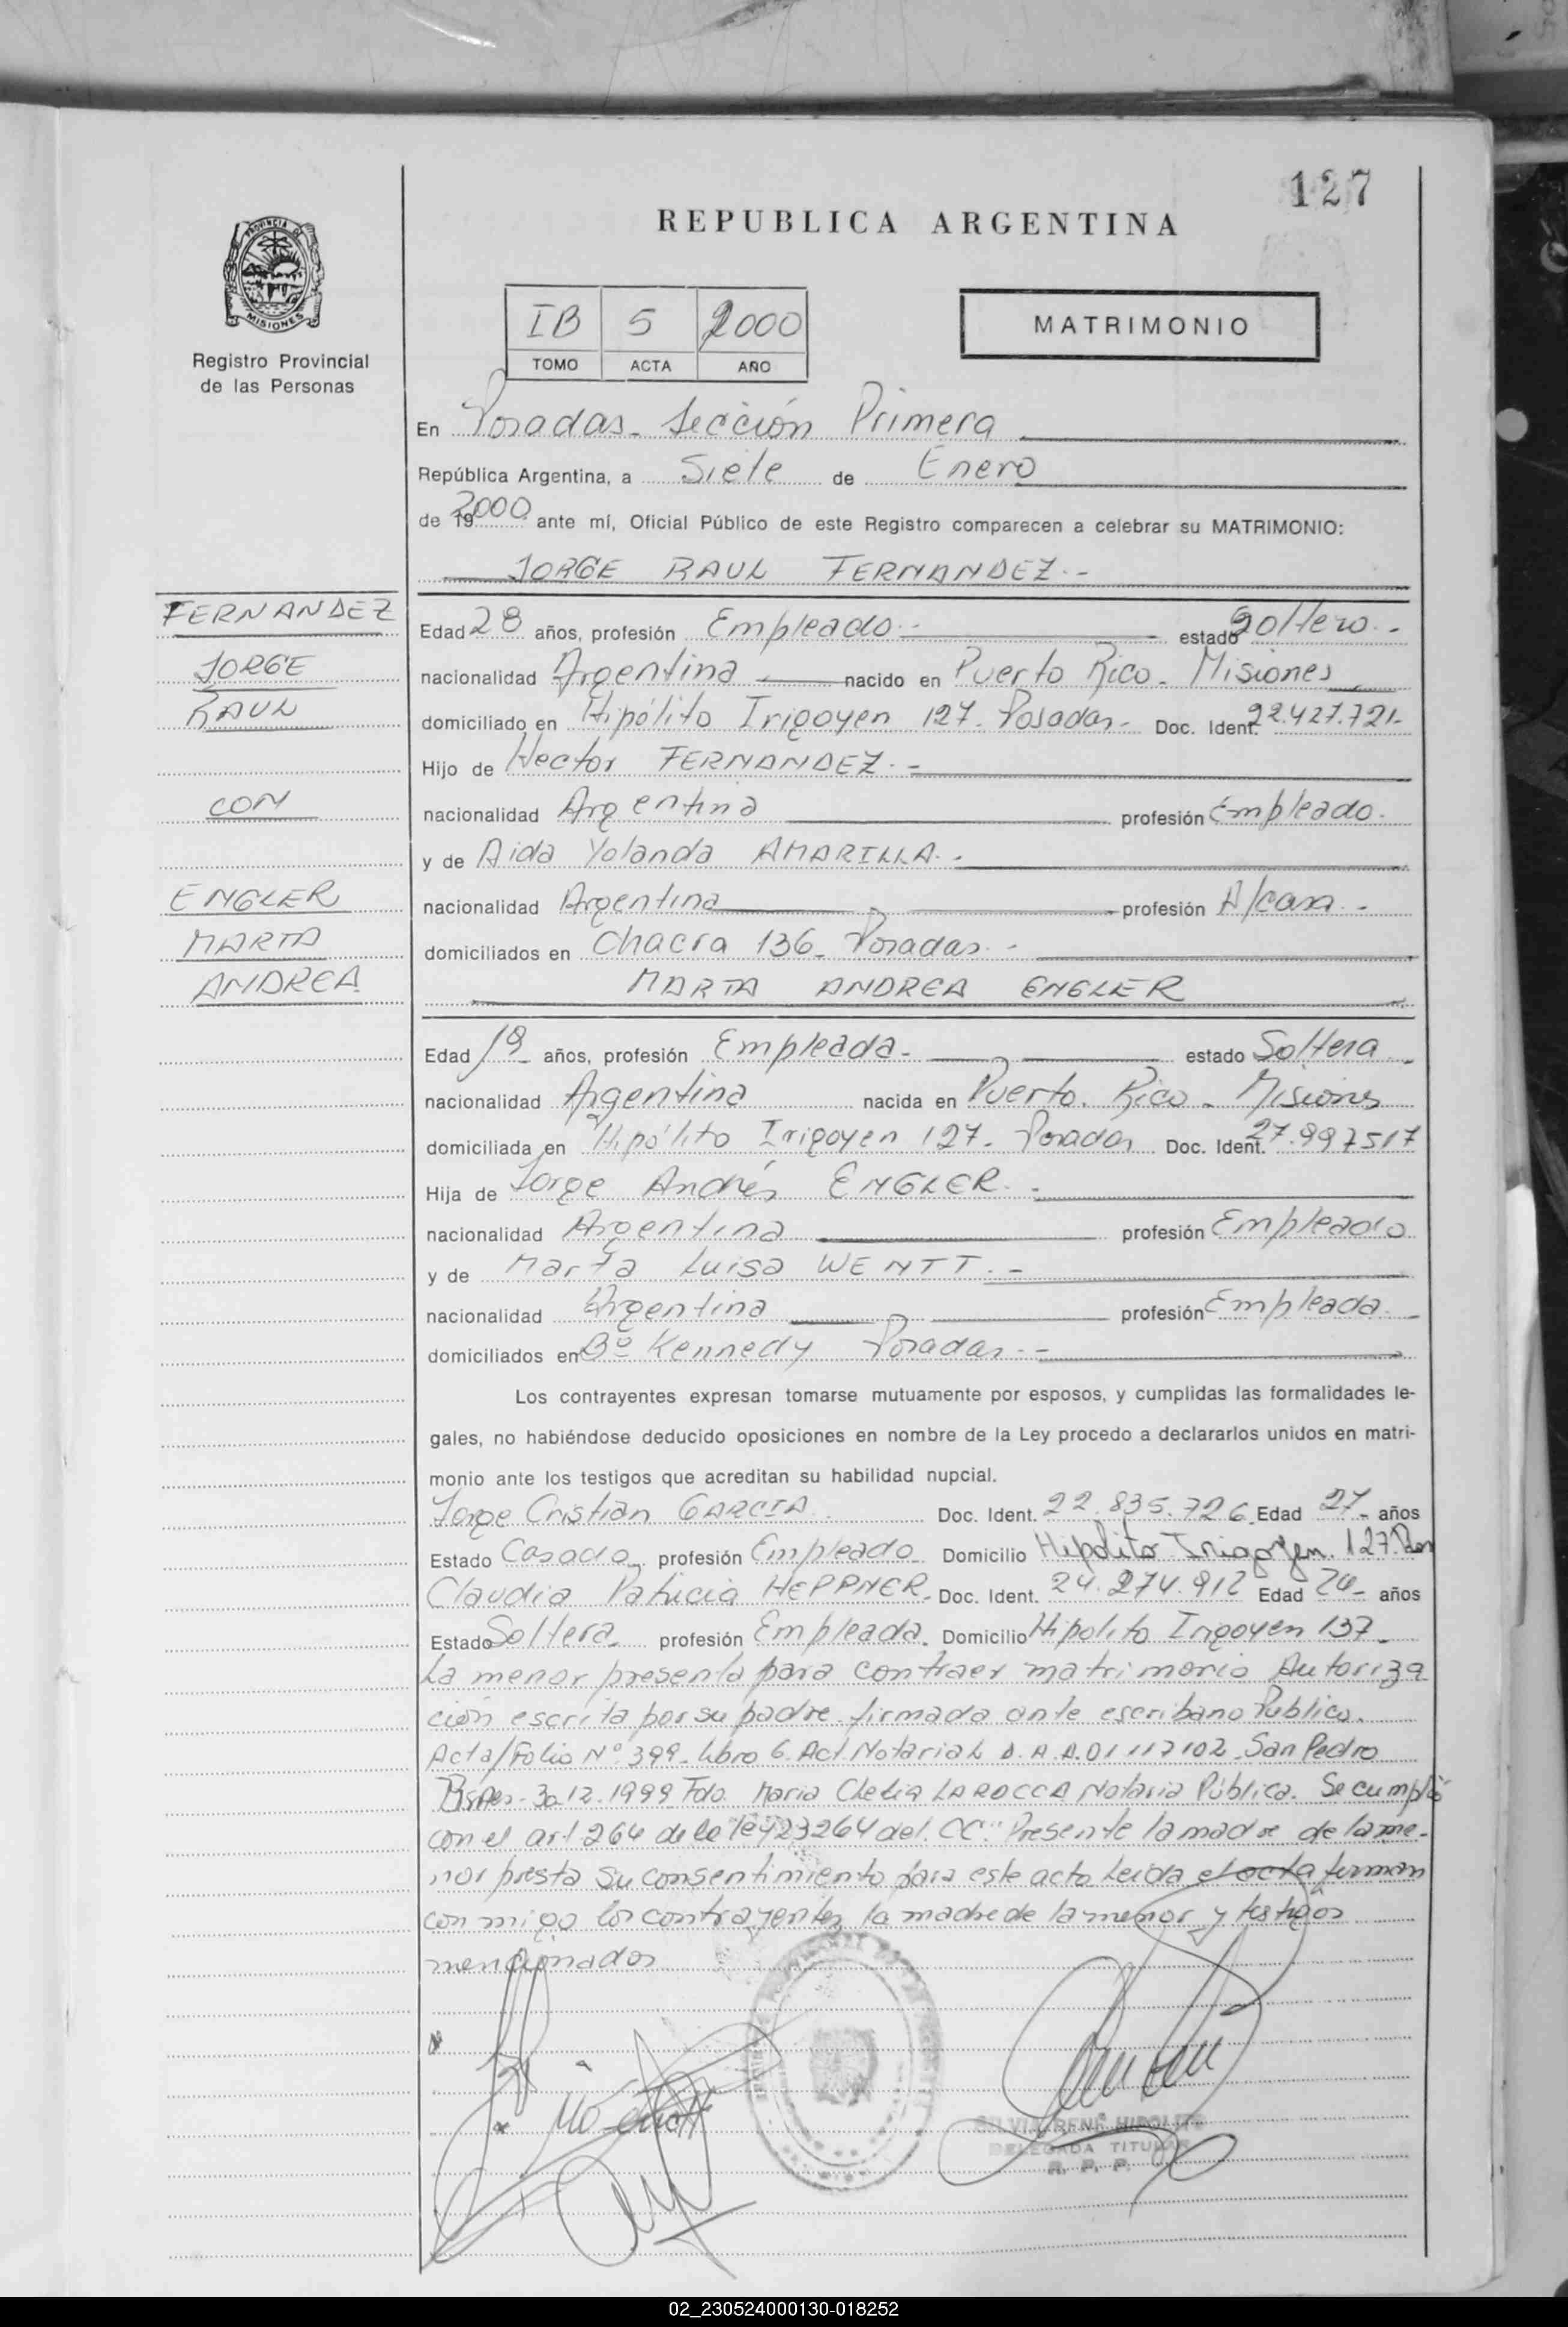 127
REPUBLICA ARGENTINA
PROVINCIA DE
MISIONES
Registro Provincial
de las Personas
IB 5 2000
TOMO ACTA AÑO
MATRIMONIO
En Posadas - Sección Primera
República Argentina, a Siete de Enero
de 19 2000 ante mí, Oficial Público de este Registro comparecen a celebrar su MATRIMONIO:
JORGE RAUL FERNANDEZ.-
FERNANDEZ
JORGE
RAUL
CON
ENGLER
MARTA
ANDREA
Edad 28 años, profesión Empleado.- estado Soltero.-
nacionalidad Argentina nacido en Puerto Rico - Misiones
domiciliado en Hipólito Irigoyen 127 - Posadas - Doc. Ident. 22.427.721-
Hijo de Hector FERNANDEZ.-
nacionalidad Argentina profesión Empleado.
y de Aida Yolanda AMARILLA.-
nacionalidad Argentina profesión A/casa.-
domiciliados en Chacra 136 - Posadas.-
MARTA ANDREA ENGLER
Edad 19 años, profesión Empleada - estado Soltera.-
nacionalidad Argentina nacida en Puerto Rico - Misiones
domiciliada en Hipólito Irigoyen 127 - Posadas Doc. Ident. 27.997517
Hija de Jorge Andrés ENGLER.-
nacionalidad Argentina profesión Empleado
y de Marta Luisa WENTT.-
nacionalidad Argentina profesión Empleada.
domiciliados en Bº Kennedy Posadas.-
Los contrayentes expresan tomarse mutuamente por esposos, y cumplidas las formalidades le-
gales, no habiéndose deducido oposiciones en nombre de la Ley procedo a declararlos unidos en matri-
monio ante los testigos que acreditan su habilidad nupcial.
Jorge Cristian GARCIA. Doc. Ident. 22.835.726 Edad 27 - años
Estado Casado profesión Empleado Domicilio Hipólito Irigoyen. 127. Pos
Claudia Patricia HEPPNER - Doc. Ident. 24.274.912 Edad 24 - años
Estado Soltera profesión Empleada. Domicilio Hipolito Irigoyen 137 -
La menor presenta para contraer matrimonio Autoriza
ción escrita por su padre firmada ante escribano Publico.
Acta/Folio Nº 399 - Libro 6. Act. Notarial D.A.A.01117102. San Pedro
BsAs - 30-12-1999 Fdo. Maria Clelia LAROCCA Notaria Pública. Se cumplió
con el art 264 de la ley 23264 del. CC." Presente la madre de la me-
nor presta su consentimiento para este acto Leida el acta firman
conmigo los contrayentes la madre de la menor y testigos
mencionados
SILVIA RENE HIPOLITO
DELEGADA TITULAR
R. P. P.
02_230524000130-018252